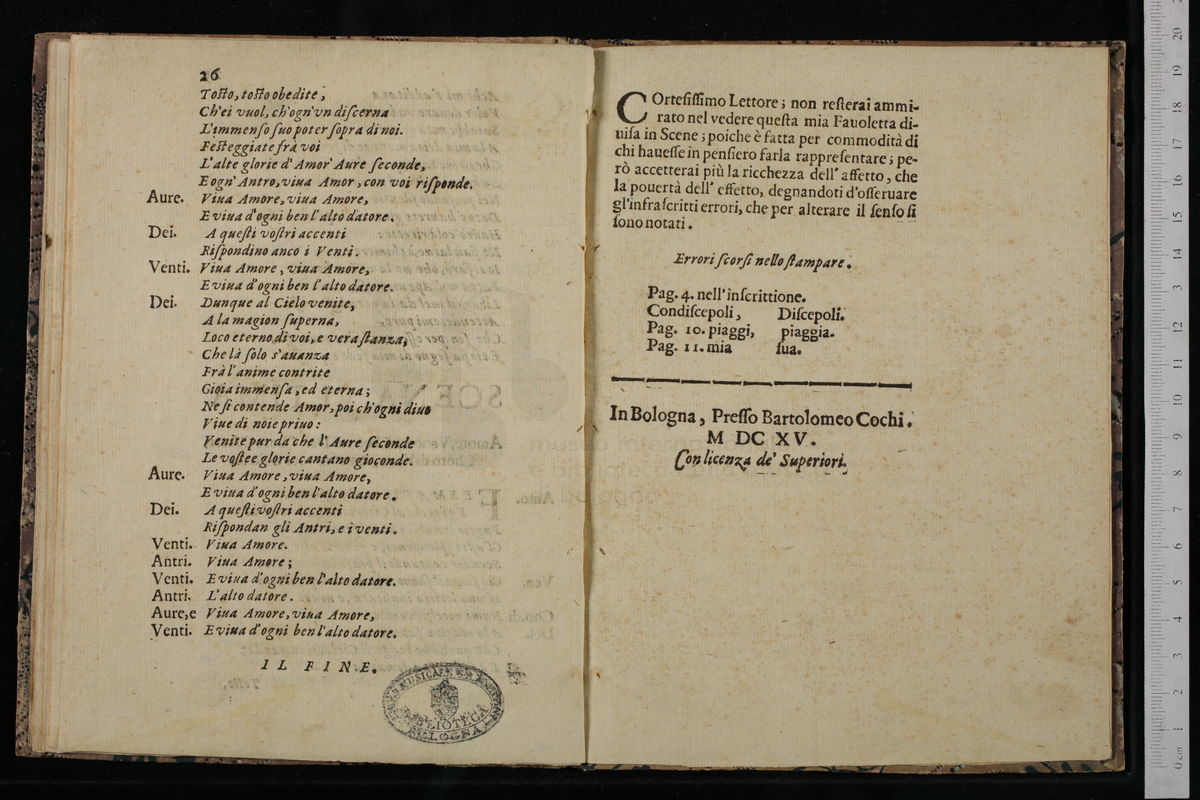 26
Toſto, toſto obedite,
Ch'ei vuol, ch'ogn'vn diſcerna
L'immenſo ſuo poter ſopra di noi.
Feſteggiate frà voi
L'alte glorie d'Amor' Aure ſeconde,
E ogn' Antro, viua Amor, con voi riſponde.
Aure. Viua Amore, viua Amore,
E viua d'ogni ben l'alto datore.
Dei. A queſti voſtri accenti
Riſpondino anco i Venti.
Venti. Viua Amore, viua Amore,
E viua d'ogni ben l'alto datore.
Dei. Dunque al Cielo venite,
A la magion ſuperna,
Loco eterno di voi, e vera ſtanza,
Che là ſolo s'auanza
Frà l'anime contrite
Gioia immenſa, ed eterna;
Ne ſi contende Amor, poi ch'ogni diuo
Viue di noie priuo:
Venite pur da che l'Aure ſeconde
Le voſtee glorie cantano gioconde.
Aure. Viua Amore, viua Amore,
E viua d'ogni ben l'alto datore.
Dei. A queſti voſtri accenti
Riſpondan gli Antri, e i venti.
Venti. Viua Amore.
Antri. Viua Amore;
Venti. E viua d'ogni ben l'alto datore.
Antri. L'alto datore.
Aure, e Viua Amore, viua Amore,
Venti. E viua d'ogni ben l'alto datore.
IL FINE.
BIBLIOTECA
BOLOGNA
COrteſiſſimo Lettore; non reſterai ammi-
rato nel vedere queſta mia Fauoletta di-
uiſa in Scene; poiche è fatta per commodità di
chi haueſſe in penſiero farla rappreſentare; pe-
rò accetterai più la ricchezza dell' affetto, che
la pouertà dell' effetto, degnandoti d'oſſeruare
gl'infraſcritti errori, che per alterare il ſenſo ſi
ſono notati.
Errori ſcorſi nello ſtampare.
Pag. 4. nell'inſcrittione.
Condiſcepoli, Diſcepoli.
Pag. 10. piaggi, piaggia.
Pag. 11. mia ſua.
In Bologna, Preſſo Bartolomeo Cochi.
M DC XV.
Con licenza de' Superiori.
0 cm 1 2 3 4 5 6 7 8 9 10 11 12 13 14 15 16 17 18 19 20